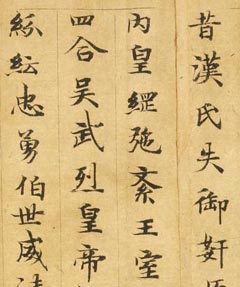 昔漢氏失御奸
內皇綱弛紊王室
四合吳武烈皇帝
紛紜忠勇伯世威